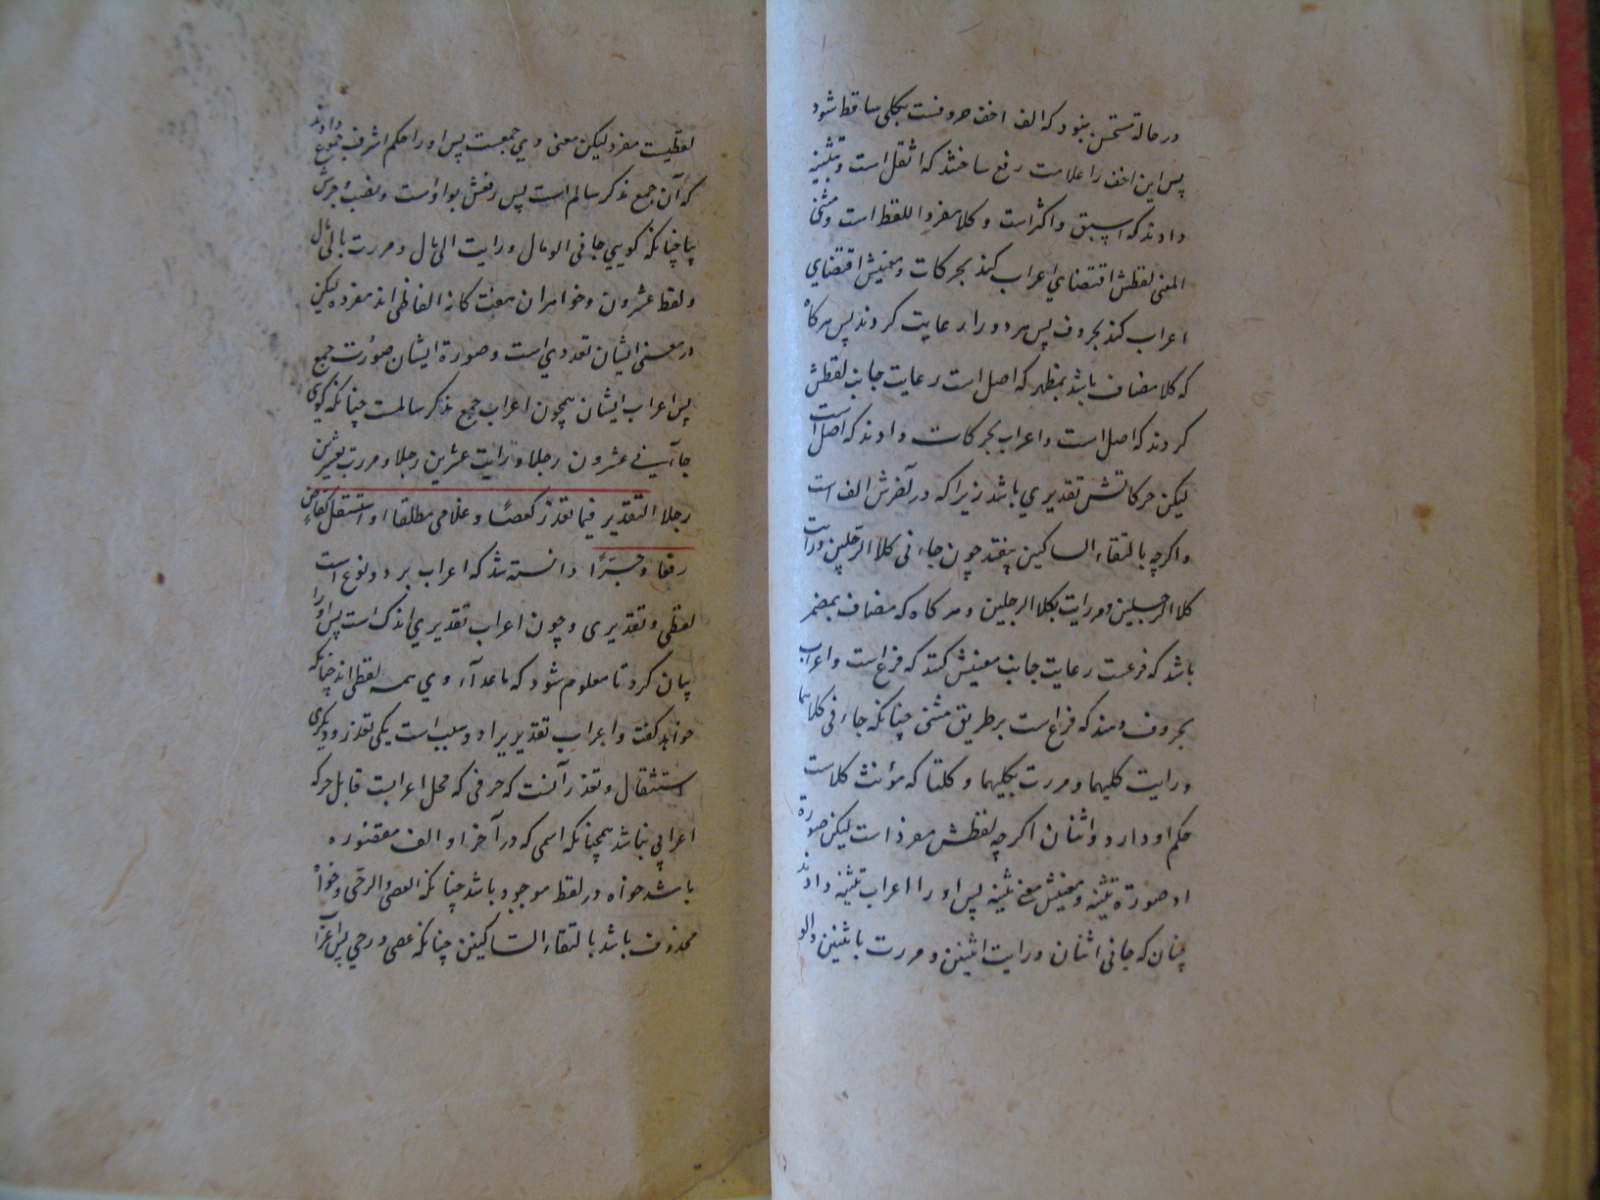 در حالة مستحسن نبود که الف اخف حروفست بکلی ساقط شود
پس این اخف را علامت رفع ساختند که اثقل است و تثنیه
دادند که اسبق و اکثر است و کلا مفرد اللفظ است و مثنی
المعنی لفظش اقتضای اعراب کند بحرکات و معنیش اقتضای
اعراب کند بحروف پس هر دو را رعایت کردند پس هر کاه
که کلا مضاف باشد بمظهر که اصل است رعایت جانب لفظش
کردند که اصل است و اعراب بحرکات دادند که اصل است
لیکن حرکاتش تقدیری باشد زیرا که در آخرش الف است
و اکرچه بالتقاء الساکنین بیفتد چون جاءنی کلا الرجلین و رایت
کلا الرجلین و مررت بکلا الرجلین و هر کاه که مضاف بمضمر
باشد که فرعست رعایت جانب معنیش کنند که فرع است و اعراب
بحروف دهند که فرع است بر طریق مثنی چنانکه جاءنی کلاهما
و رایت کلیهما و مررت بکلیهما و کلتا که مؤنث کلاست
حکم او دارد و اثنان اکرچه لفظش مفرد است لیکن صورة
او صورة تثنیه و معنیش معنی تثنیه پس او را اعراب تثنیه دادند
چنان که جانی اثنان و رایت اثنین و مررت باثنین و الو
لفظیست مفرد لیکن معنی وی جمعست پس او را حکم اشرف جموع دادند
که آن جمع مذکر سالم است پس رفعش بواو است و نصب و جرش
بیا چنانکه کویی جانی الو مال و رایت الی مال و مررت بالی مال
و لفظ عشرون و خواهران هفت کانه الفاظی اند مفرد لیکن
در معنی ایشان تعددی است و صورة ایشان صورت جمع
پس اعراب ایشان همچون اعراب جمع مذکر سالمست چنانکه کوی
جآئنی عشرون رجلا و رایت عشرین رجلا و مررت بعشرین
رجلا التقدیر فیما تعذر کعصًا و غلامی مطلقا او استثقل کقاضٍ
رفعا و جرًّا دانسته شد که اعراب بر دو نوع است
لفظی و تقدیری و چون اعراب تقدیری اندک است پس او را
بیان کرد تا معلوم شود که ماعداء وی همه لفظی اند چنانکه
خواهد کفت و اعراب تقدیر یرا دو سبب است یکی تعذر و دیکری
استثقال و تعذر آنست که حرفی که محل اعرابست قابل حرکه
اعرابی نباشد همچنانکه اسمی که در آخر او الف مقصوره
باشد خواه در لفظ موجود باشد چنانکه العصی و الرحی و خواه
محذوف باشد بالتقاء الساکنین چنانکه عصی و رحی پس اعراب